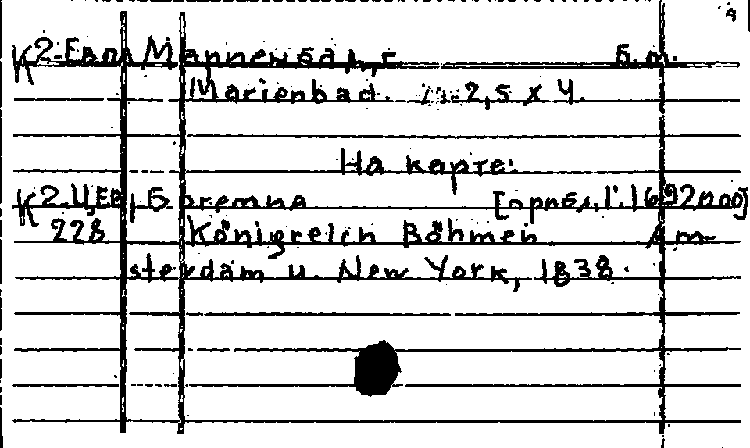 К 2-Евла Мариенбад, г. Б.м.
Marienbad. 2,5 x 4.
На карте:
К 2.Ц.Ев, Богемия [прибл. 1:1692000]
228 Königreich Böhmen Am-
sterdam u. New York, 1838.